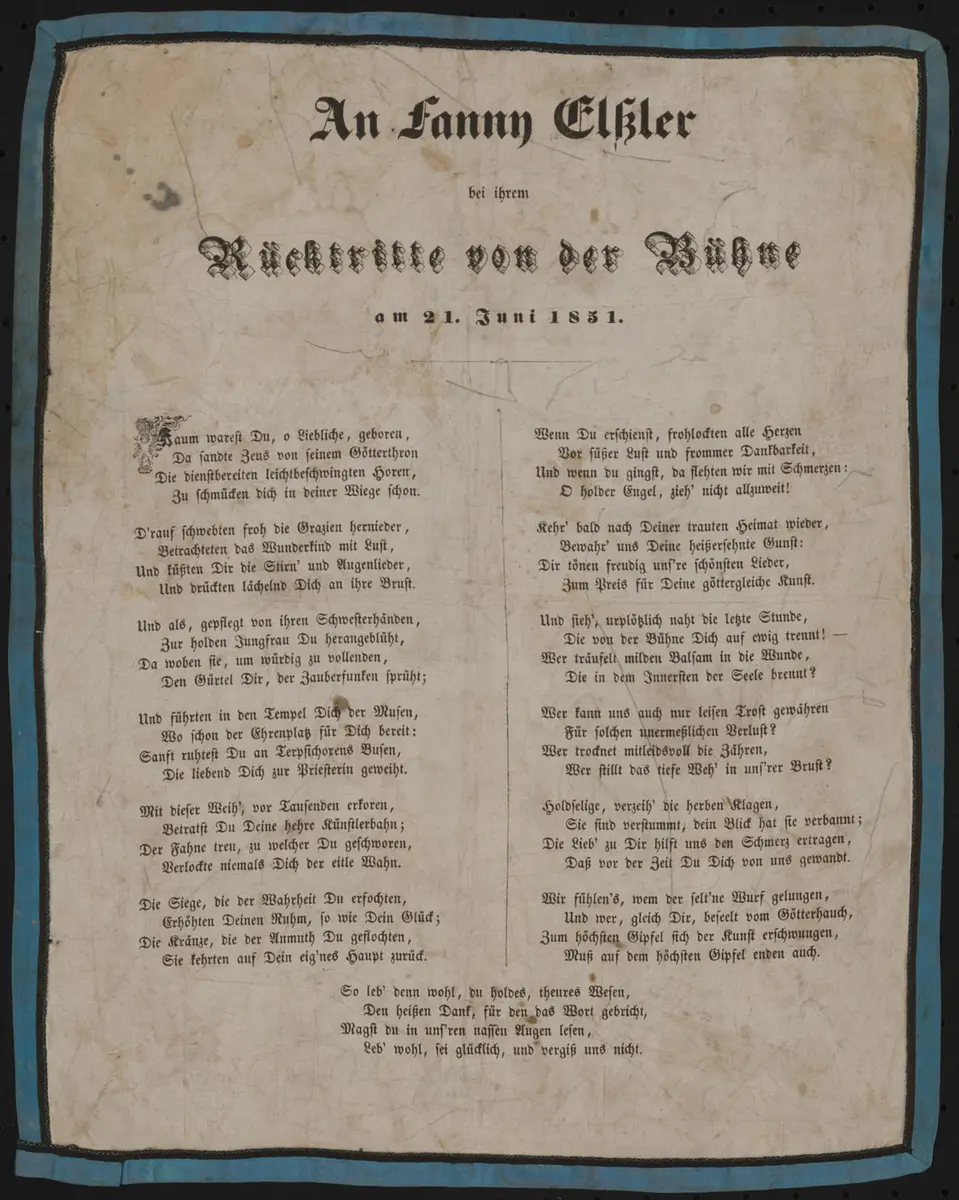 An Fanny Elßler
bei ihrem
Rücktritte von der Bühne
am 21. Juni 1851.
Kaum warest Du, o Liebliche, geboren,
Da sandte Zeus von seinem Götterthron
Die dienstbereiten leichtbeschwingten Horen,
Zu schmücken dich in deiner Wiege schon.
D'rauf schwebten froh die Grazien hernieder,
Betrachteten das Wunderkind mit Lust,
Und küßten Dir die Stirn' und Augenlieder,
Und drückten lächelnd Dich an ihre Brust.
Und als, gepflegt von ihren Schwesterhänden,
Zur holden Jungfrau Du herangeblüht,
Da woben sie, um würdig zu vollenden,
Den Gürtel Dir, der Zauberfunken sprüht;
Und führten in den Tempel Dich der Musen,
Wo schon der Ehrenplatz für Dich bereit:
Sanft ruhtest Du an Terpsichorens Busen,
Die liebend Dich zur Priesterin geweiht.
Mit dieser Weih', vor Tausenden erkoren,
Betratst Du Deine hehre Künstlerbahn;
Der Fahne treu, zu welcher Du geschworen,
Verlockte niemals Dich der eitle Wahn.
Die Siege, die der Wahrheit Du erfochten,
Erhöhten Deinen Ruhm, so wie Dein Glück;
Die Kränze, die der Anmuth Du geflochten,
Sie kehrten auf Dein eig'nes Haupt zurück.
Wenn Du erschienst, frohlockten alle Herzen
Vor süßer Lust und frommer Dankbarkeit,
Und wenn du gingst, da flehten wir mit Schmerzen:
O holder Engel, zieh' nicht allzuweit!
Kehr' bald nach Deiner trauten Heimat wieder,
Bewahr' uns Deine heißersehnte Gunst:
Dir tönen freudig uns're schönsten Lieder,
Zum Preis für Deine göttergleiche Kunst.
Und sieh', urplötzlich naht die letzte Stunde,
Die von der Bühne Dich auf ewig trennt! —
Wer träufelt milden Balsam in die Wunde,
Die in dem Innersten der Seele brennt?
Wer kann uns auch nur leisen Trost gewähren
Für solchen unermeßlichen Verlust?
Wer trocknet mitleidsvoll die Zähren,
Wer stillt das tiefe Weh' in uns'rer Brust?
Holdselige, verzeih' die herben Klagen,
Sie sind verstummt, dein Blick hat sie verbannt;
Die Lieb' zu Dir hilft uns den Schmerz ertragen,
Daß vor der Zeit Du Dich von uns gewandt.
Wir fühlen's, wem der selt'ne Wurf gelungen,
Und wer, gleich Dir, beseelt vom Götterhauch,
Zum höchsten Gipfel sich der Kunst erschwungen,
Muß auf dem höchsten Gipfel enden auch.
So leb' denn wohl, du holdes, theures Wesen,
Den heißen Dank, für den das Wort gebricht,
Magst du in uns'ren nassen Augen lesen,
Leb' wohl, sei glücklich, und vergiß uns nicht.